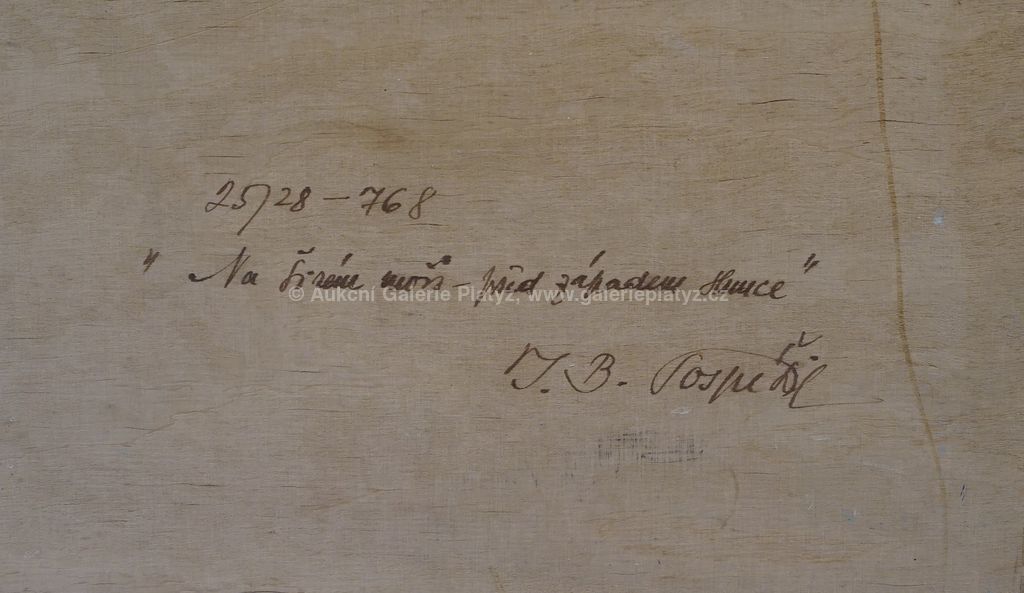 25/28 – 768
" Na širém moři – před západem slunce "
© Aukcní Galerie Platýz, www.galerieplatyz.cz
J. B. Pospíšil